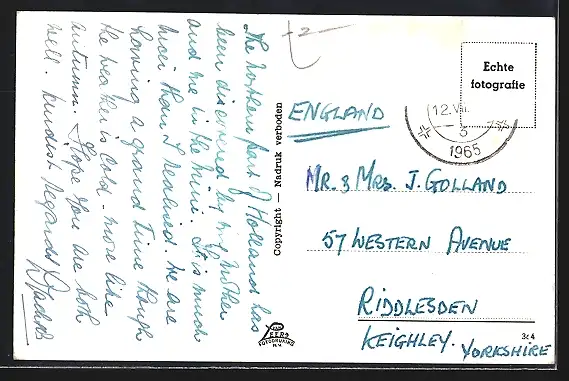 The northern part of Holland has
been discovered by my Mother
and me in the mini. It is much
nicer than I realised. We are
having a grand time though
the weather is cold - more like
autumn. Hope you are both
well. Kindest Regards
Copyright — Nadruk verboden
Echte
fotografie
12.VIII.
1965
ENGLAND
MR. & MRS. J. GOLLAND
57 WESTERN AVENUE
RIDDLESDEN
KEIGHLEY.
YORKSHIRE
FOTODRUKIND
N.V.
3c4